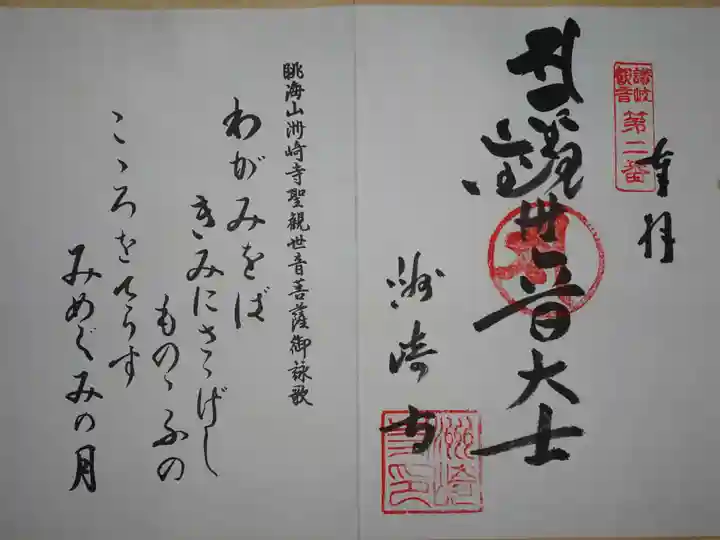 讃岐
観音
第二番
奉拝
聖観世音大士
洲崎寺
眺海山洲崎寺聖観世音菩薩御詠歌
わがみをば
きみにさゝげし
ものゝふの
こゝろをてらす
みめぐみの月